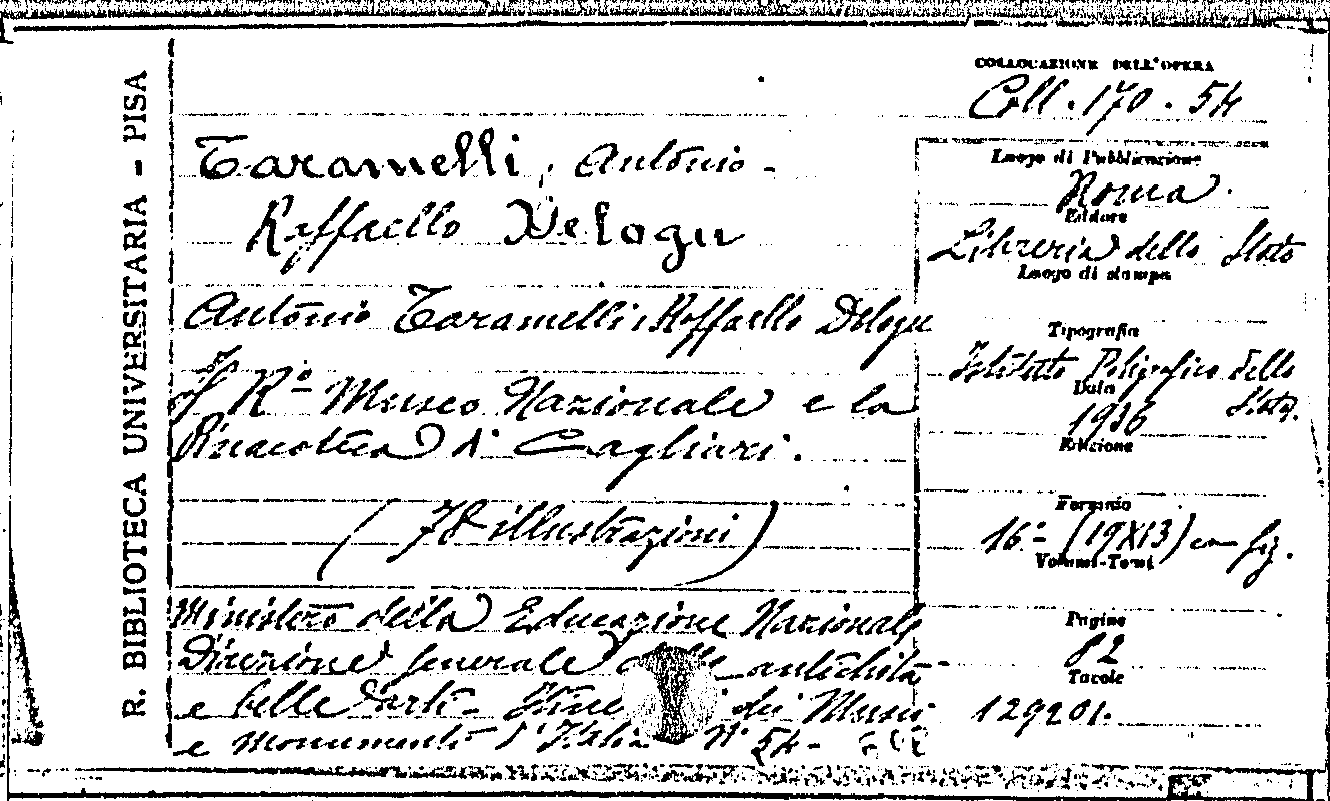 R. BIBLIOTECA UNIVERSITARIA - PISA
COLLOCAZIONE DELL'OPERA
Coll. 170. 54
Taramelli, Antonio -
Raffaello Delogu
Antonio Taramelli, Raffaello Delogu
Il R.º Museo Nazionale e la
Pinacoteca di Cagliari.
(78 illustrazioni)
Ministero della Educazione Nazionale
Direzione generale antichità
e belle arti - dei Musei
e monumenti d'Italia Nº 54 -
Luogo di Pubblicazione
Roma
Editore
Libreria dello Stato
Luogo di stampa
Tipografia
Istituto Poligrafico dello
Stato.
Data
1936
Edizione
Formato
16º - (19X13) con fig.
Volumi-Tomi
Pagine
82
Tavole
129201.